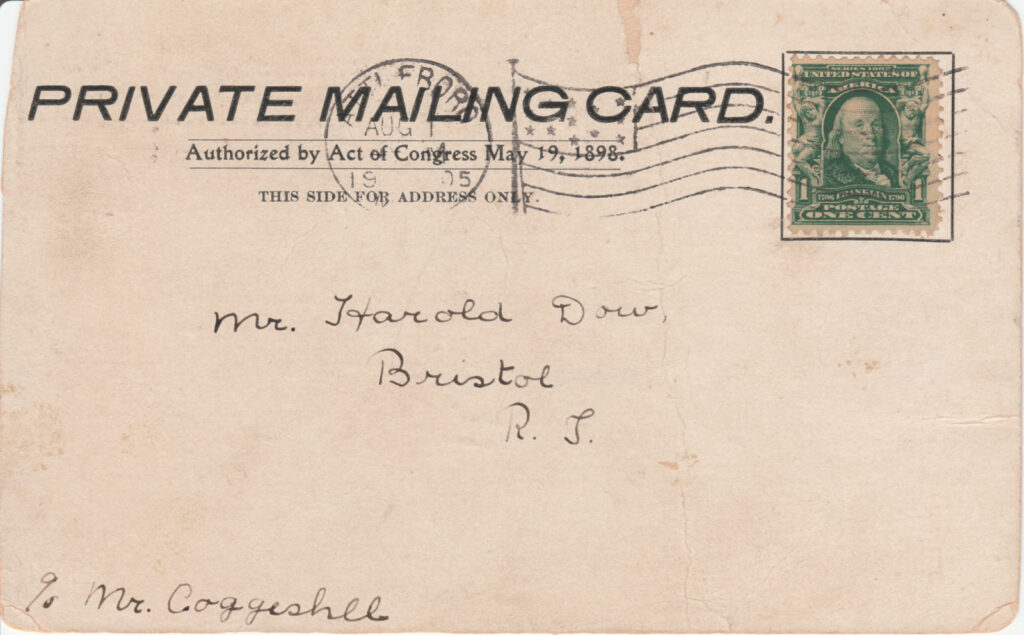 PRIVATE MAILING CARD.
Authorized by Act of Congress May 19, 1898.
THIS SIDE FOR ADDRESS ONLY.
AUG 1
19 05
SERIES 1902
UNITED STATES OF
AMERICA
1 1
1706 FRANKLIN 1790
POSTAGE
ONE CENT
Mr. Harold Dow,
Bristol
R. I.
c/o Mr. Coggeshll